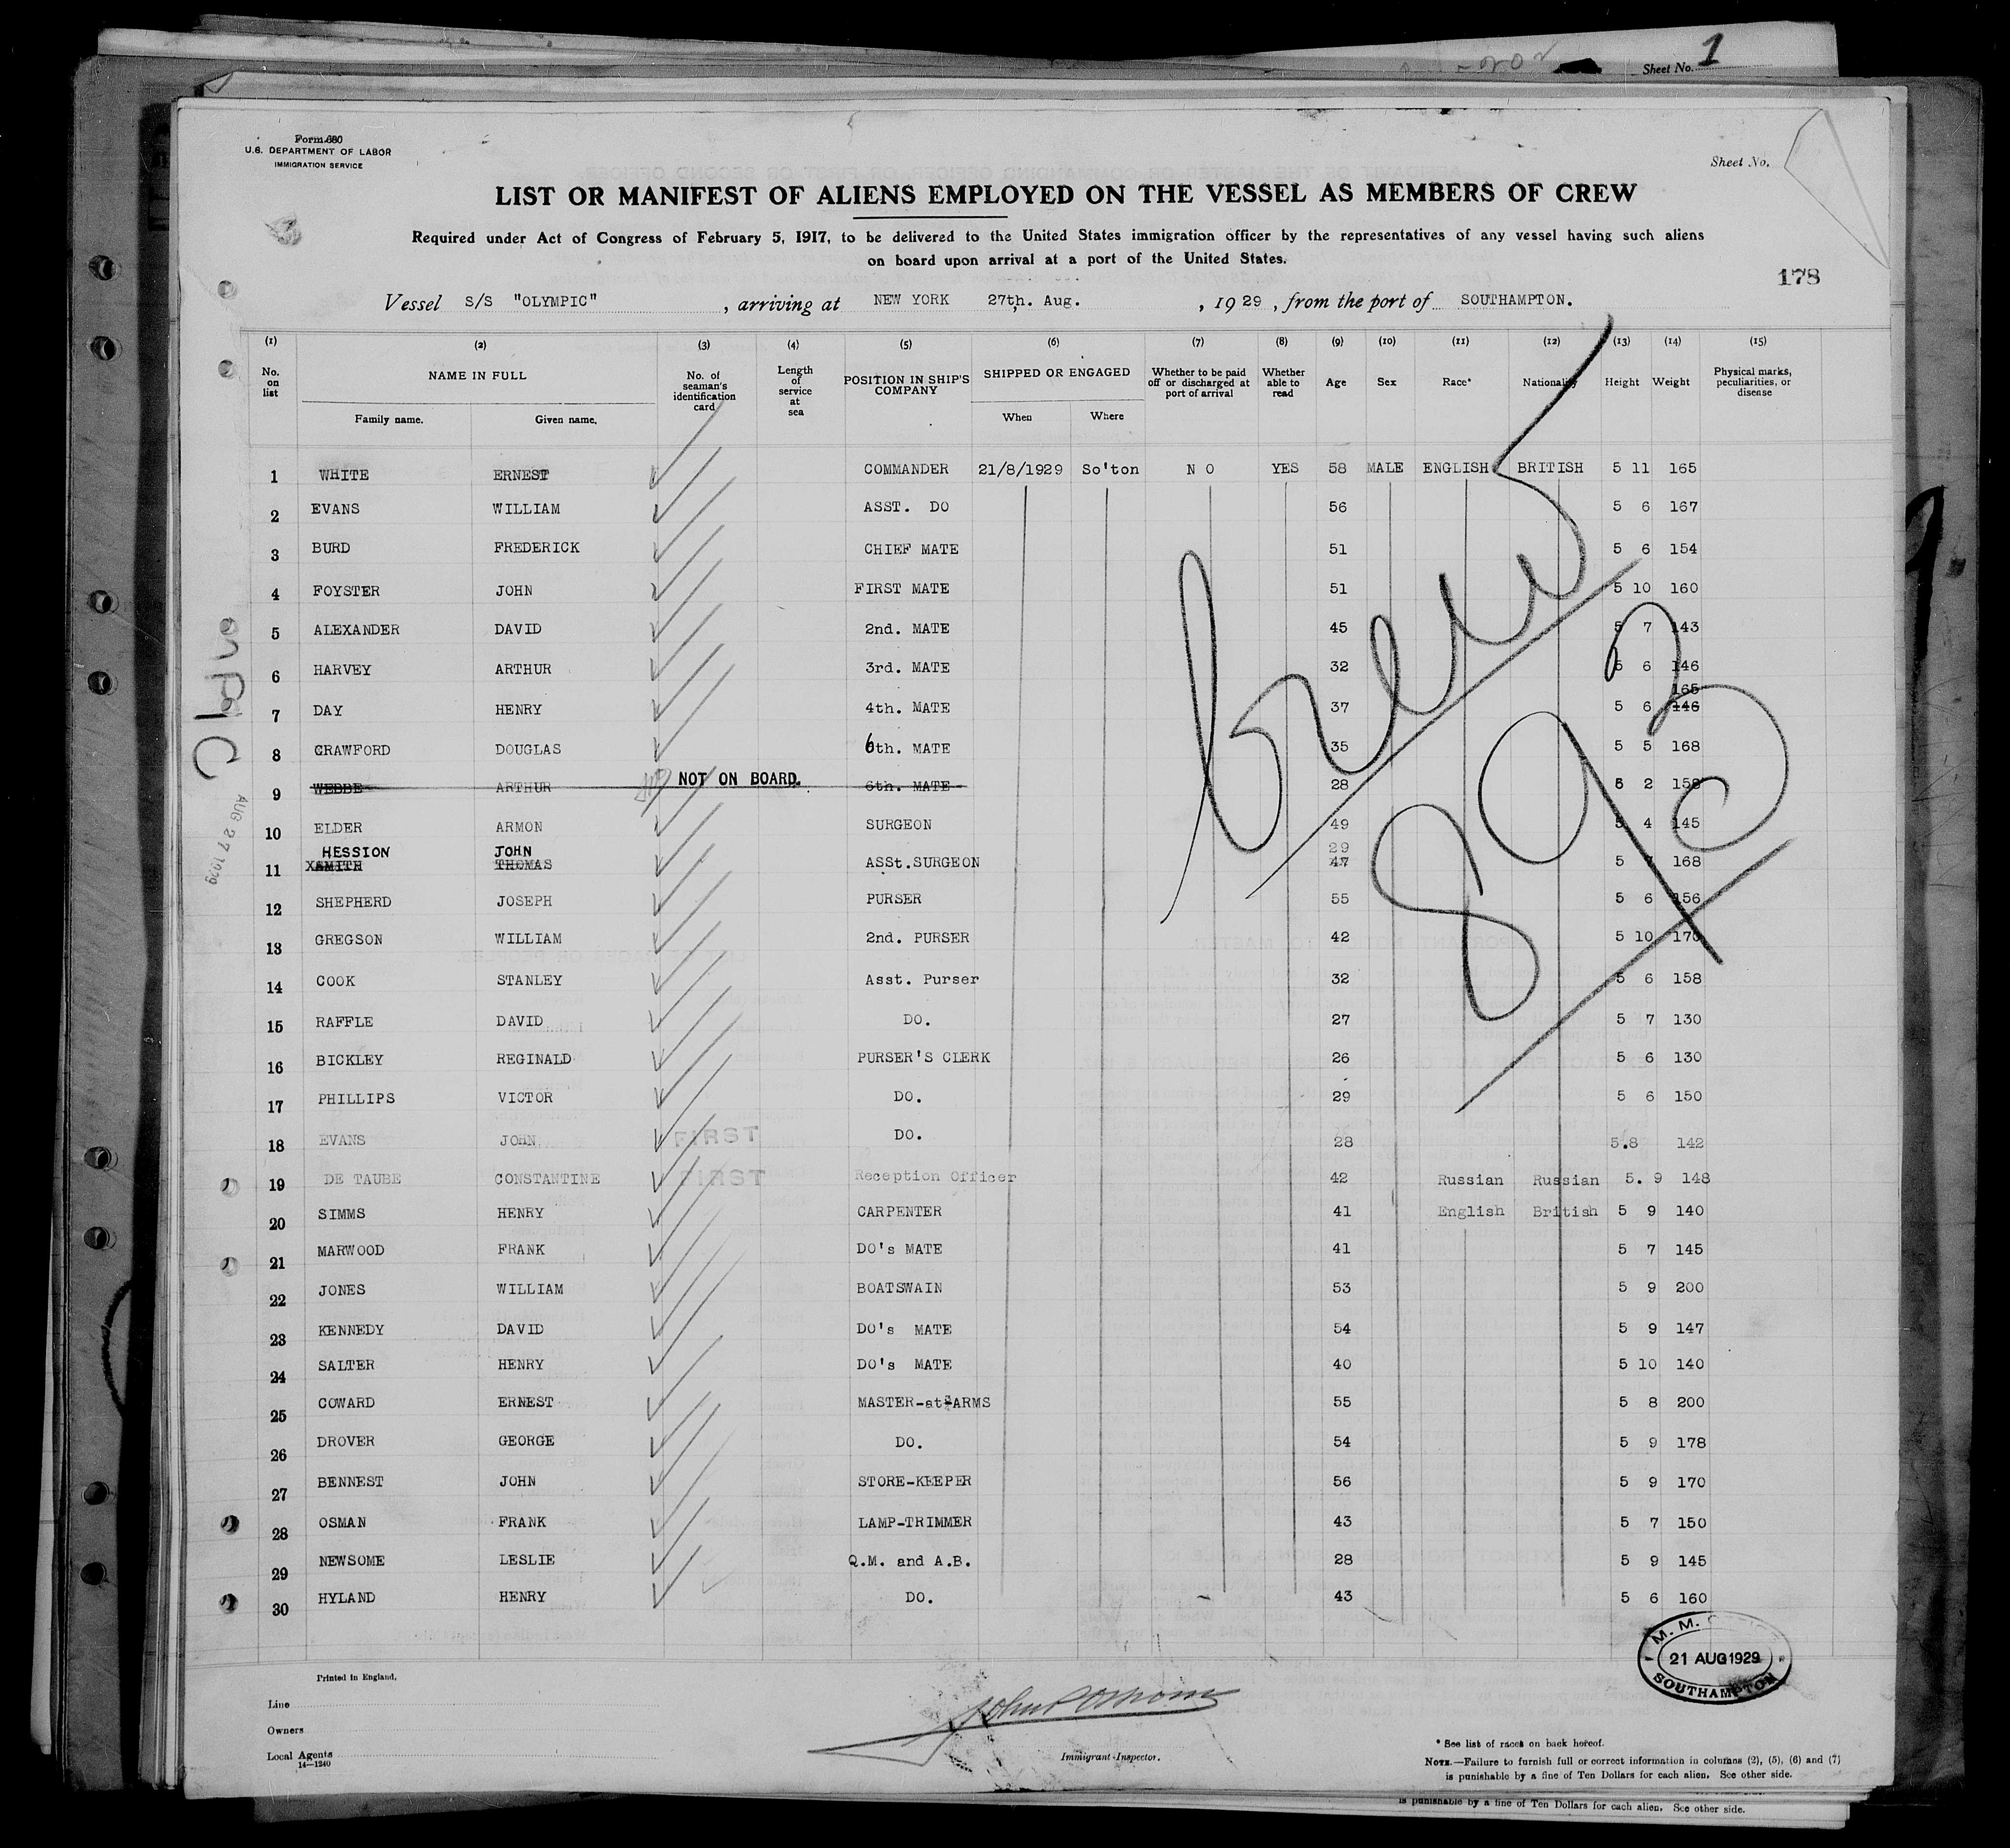 Sheet No. 1
Form 680
U.S. DEPARTMENT OF LABOR
IMMIGRATION SERVICE
Sheet No.
LIST OR MANIFEST OF ALIENS EMPLOYED ON THE VESSEL AS MEMBERS OF CREW
Required under Act of Congress of February 5, 1917, to be delivered to the United States immigration officer by the representatives of any vessel having such aliens
on board upon arrival at a port of the United States.
178
Vessel S/S "OLYMPIC" , arriving at NEW YORK 27th. Aug. , 19 29 , from the port of SOUTHAMPTON.
(1) (2) (3) (4) (5) (6) (7) (8) (9) (10) (11) (12) (13) (14) (15)
No. on list NAME IN FULL Family name. Given name. No. of seaman's identification card Length of service at sea POSITION IN SHIP'S COMPANY SHIPPED OR ENGAGED When Where Whether to be paid off or discharged at port of arrival Whether able to read Age Sex Race* Nationality Height Weight Physical marks, peculiarities, or disease
1 WHITE ERNEST COMMANDER 21/8/1929 So'ton N O YES 58 MALE ENGLISH BRITISH 5 11 165
2 EVANS WILLIAM ASST. DO 56 5 6 167
3 BURD FREDERICK CHIEF MATE 51 5 6 154
4 FOYSTER JOHN FIRST MATE 51 5 10 160
5 ALEXANDER DAVID 2nd. MATE 45 5 7 143
6 HARVEY ARTHUR 3rd. MATE 32 5 6 146
165
7 DAY HENRY 4th. MATE 37 5 6 146
8 CRAWFORD DOUGLAS 6th. MATE 35 5 5 168
NOT ON BOARD.
9 WEBBE ARTHUR 6th. MATE 28 6 2 158
10 ELDER ARMON SURGEON 49 5 4 145
HESSION JOHN 29
11 XSMITH THOMAS ASSt.SURGEON 47 5 7 168
12 SHEPHERD JOSEPH PURSER 55 5 6 156
13 GREGSON WILLIAM 2nd. PURSER 42 5 10 170
14 COOK STANLEY Asst. Purser 32 5 6 158
15 RAFFLE DAVID DO. 27 5 7 130
16 BICKLEY REGINALD PURSER'S CLERK 26 5 6 130
17 PHILLIPS VICTOR DO. 29 5 6 150
18 EVANS JOHN FIRST DO. 28 5.8 142
19 DE TAUBE CONSTANTINE FIRST Reception Officer 42 Russian Russian 5. 9 148
20 SIMMS HENRY CARPENTER 41 English British 5 9 140
21 MARWOOD FRANK DO's MATE 41 5 7 145
22 JONES WILLIAM BOATSWAIN 53 5 9 200
23 KENNEDY DAVID DO's MATE 54 5 9 147
24 SALTER HENRY DO's MATE 40 5 10 140
25 COWARD ERNEST MASTER-at-ARMS 55 5 8 200
26 DROVER GEORGE DO. 54 5 9 178
27 BENNEST JOHN STORE-KEEPER 56 5 9 170
28 OSMAN FRANK LAMP-TRIMMER 43 5 7 150
29 NEWSOME LESLIE Q.M. and A.B. 28 5 9 145
30 HYLAND HENRY DO. 43 5 6 160
crew
892
AUG 27 1929
M. M.
21 AUG 1929
SOUTHAMPTON
Printed in England.
Line
Owners
Local Agents
14—1240
Immigrant Inspector.
* See list of races on back hereof.
NOTE.—Failure to furnish full or correct information in columns (2), (5), (6) and (7)
is punishable by a fine of Ten Dollars for each alien. See other side.
is punishable by a fine of Ten Dollars for each alien. See other side.